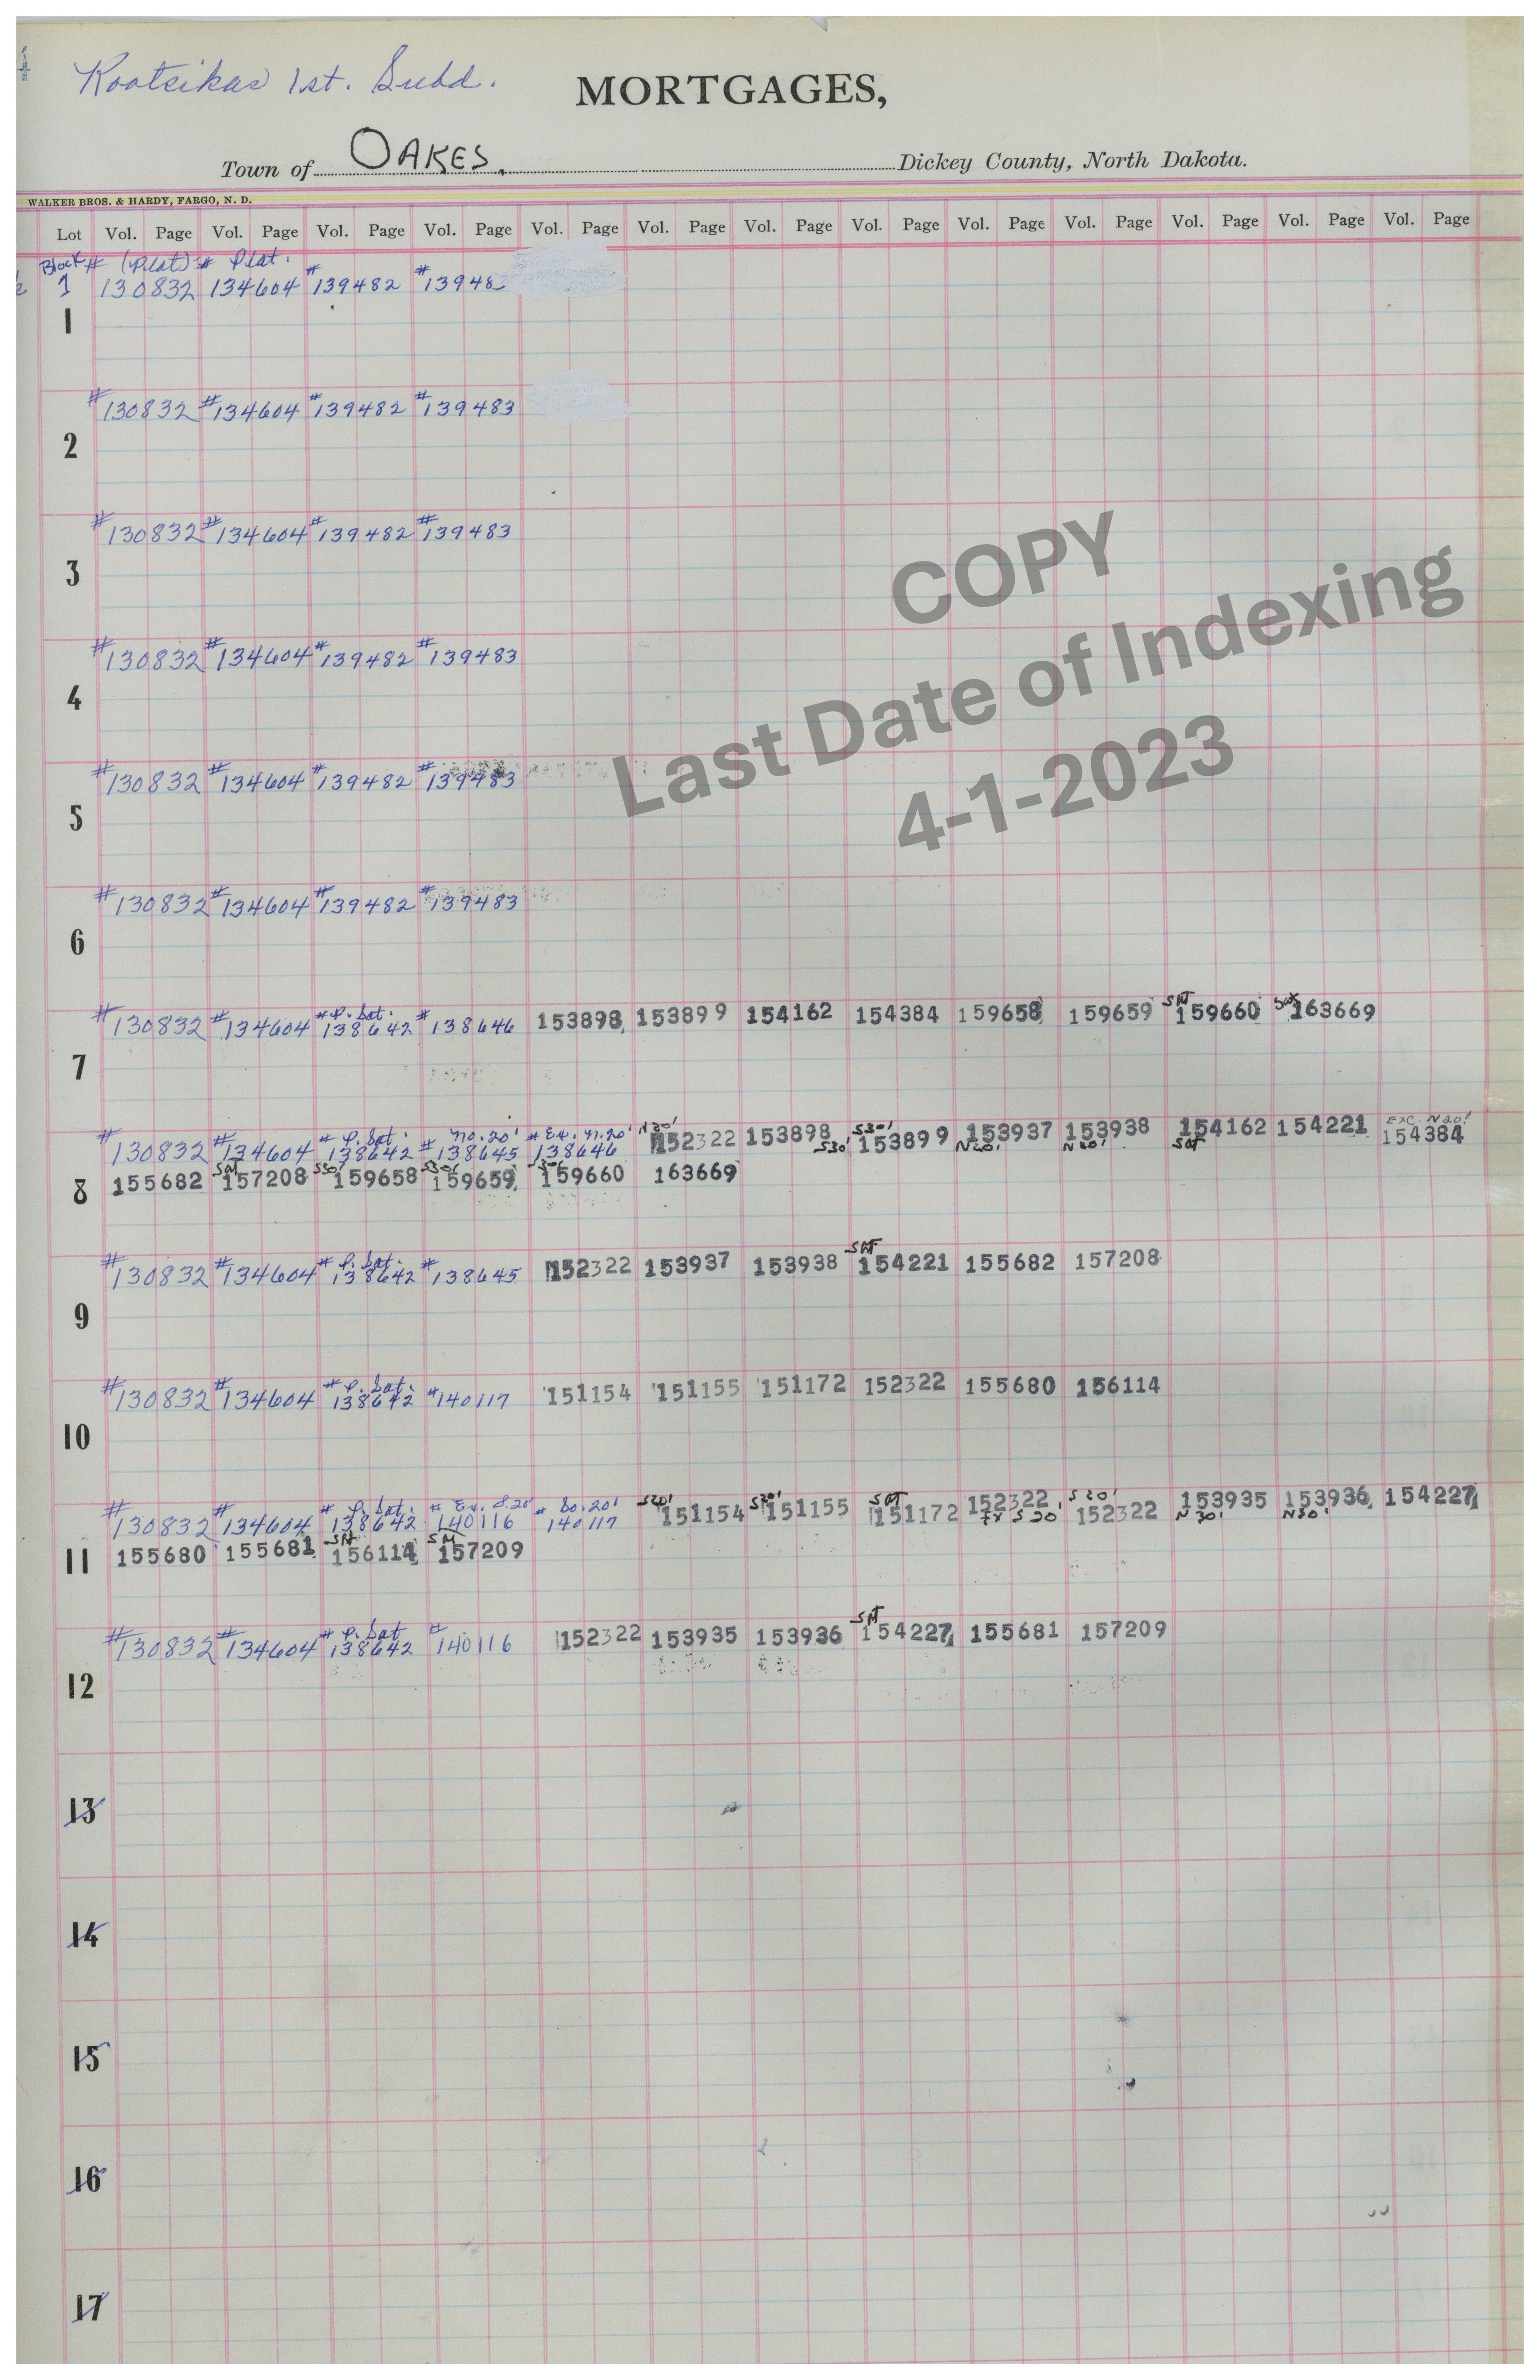 Kootsikas 1st. Subd.
MORTGAGES,
Town of OAKES. Dickey County, North Dakota.
WALKER BROS. & HARDY, FARGO, N. D.
Lot Vol. Page Vol. Page Vol. Page Vol. Page Vol. Page Vol. Page Vol. Page Vol. Page Vol. Page Vol. Page Vol. Page Vol. Page Vol. Page
Block # (Plat) # Plat. # #
1 130832 134604 139482 13948
1
#130832 #134604 #139482 #139483
2
#130832 #134604 #139482 #139483
3
#130832 #134604 #139482 #139483
4
#130832 #134604 #139482 #139483
5
#130832 #134604 #139482 #139483
6
# P. Sat. SAT
#130832 #134604 138642 #138646 153898 153899 154162 154384 159658 159659 159660 163669
7
# P. Sat. no. 20' # Ex. n. 20' N 20' S30' EXC. N 20'
#130832 #134604 138642 #138645 138646 152322 153898 153899 153937 153938 154162 154221 154384
S30' N20' N20' SAT
SAT S30' S30' S30'
155682 157208 159658 159659 159660 163669
8
# P. Sat. SAT
#130832 #134604 138642 #138645 152322 153937 153938 154221 155682 157208
9
# P. Sat.
#130832 #134604 138642 #140117 151154 151155 151172 152322 155680 156114
10
# P. Sat. # Ex. S. 20' # So. 20' S20' S20' SAT S 20'
#130832 #134604 138642 140116 140117 151154 151155 151172 152322 152322 153935 153936 154227
Ex S 20' N 30' N30'
SAT SAT
155680 155681 156114 157209
11
# P. Sat SAT
#130832 #134604 138642 #140116 152322 153935 153936 154227 155681 157209
12
13
14
15
16
17
COPY
Last Date of Indexing
4-1-2023